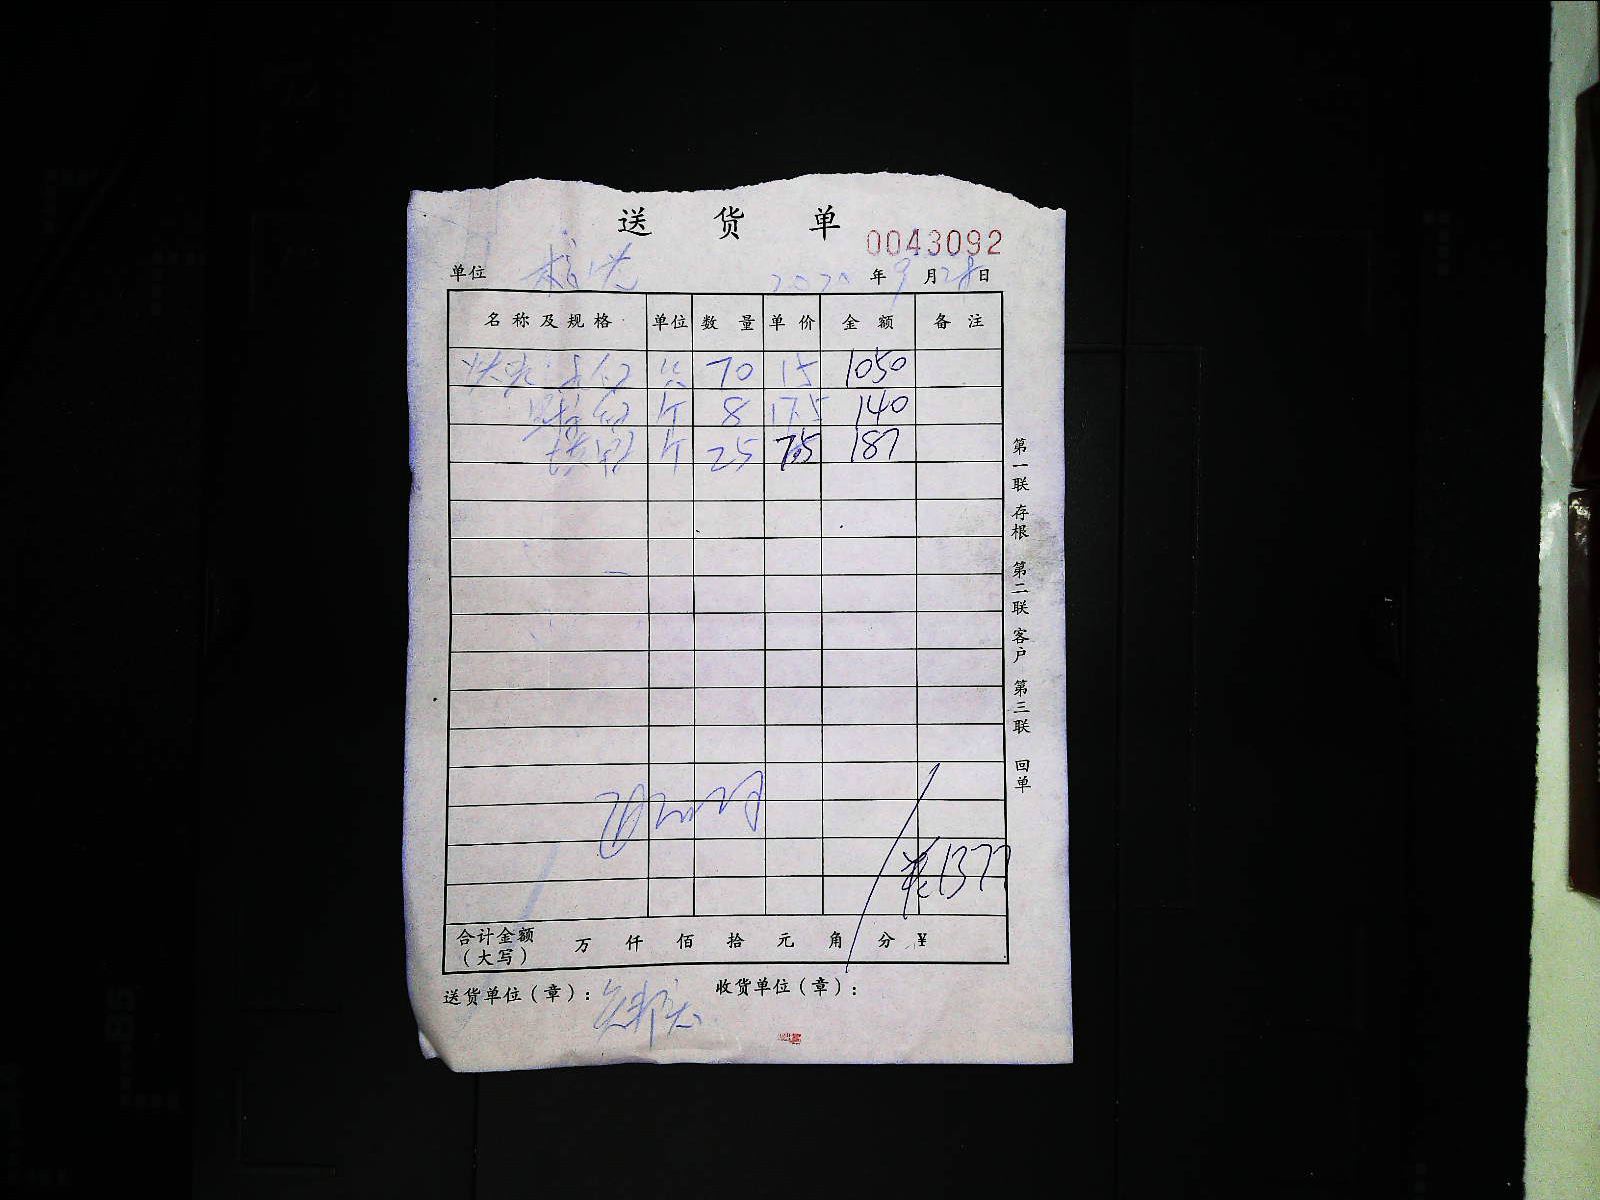 送 货 单
0043092
单位 2020 年 9 月 28 日
名称及规格 单位 数量 单价 金额 备注
70 15 1050
个 8 17.5 140
个 25 7.5 187
共1377
合计金额（大写） 万 仟 佰 拾 元 角 分 ¥
送货单位（章）： 收货单位（章）：
第一联 存根 第二联 客户 第三联 回单